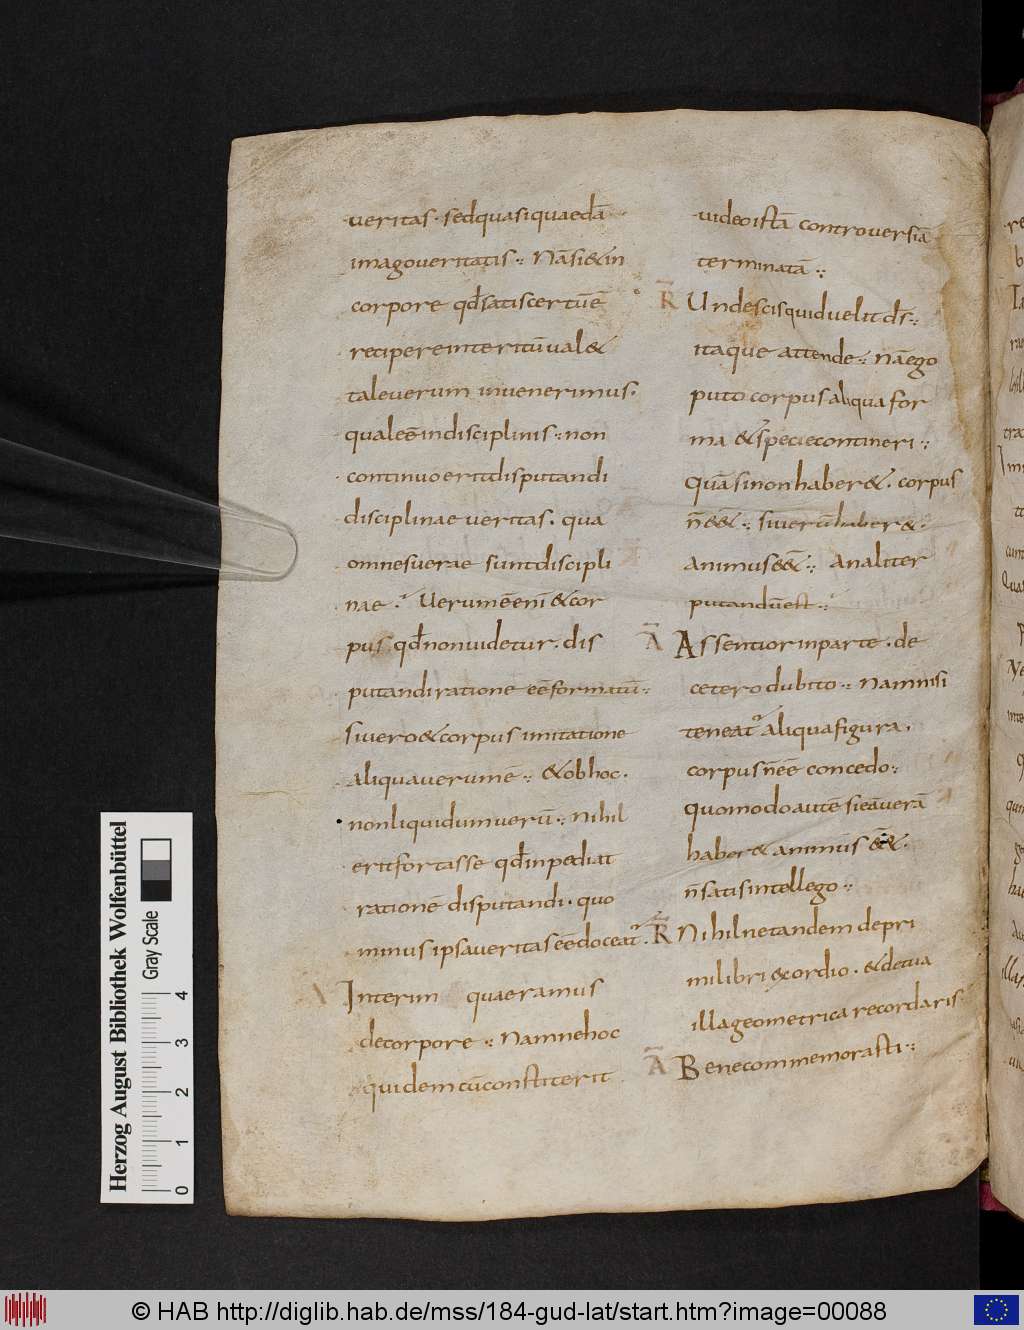 veritas · sed quasi quaedā
imago veritatis :· Nā si & in
corpore qđ satis certū ē
recipere interitū ual&
tale verum inuenerimus ·
quale ē in disciplinis :· non
continuo erit disputandi
disciplinae veritas · qua
omnes uerae sunt discipli
nae · Uerum ē enī & cor
pus qđ non uidetur · dis
putandi ratione eē formatū :·
si uero & corpus imitatione
aliqua verum ē :· & ob hoc ·
non liquidum verū :· nihil
erit fortasse qđ inpediat
rationē disputandi · quo
minus ipsa veritas eē doceat᷑ ·
Interim quaeramus
de corpore :· Nam ne hoc
quidem cū constiterit
uideo istā controversiā
terminatā :·
R̄ Unde scis quid uelit d̄s :·
itaque attende :· nā ego
puto corpus aliqua for
ma & specie contineri :·
quā si non haber& · corpus
n̄ e&̄ :· si verū haber& ·
animus e&̄ :· An aliter
putandū est :·
Ā Assentior in parte · de
cetero dubito :· nam nisi
teneat᷑ aliqua figura ·
corpus n̄ eē concedo :·
quomodo autē si eā verā
haber& animus e&̄ ·
n̄ satis intellego :·
R̄ Nihil ne tandem de pri
mi libri exordio · & de tua
illa geometrica recordaris
Ā Bene commemorasti :·
Herzog August Bibliothek Wolfenbüttel
Gray Scale
0 1 2 3 4
© HAB http://diglib.hab.de/mss/184-gud-lat/start.htm?image=00088